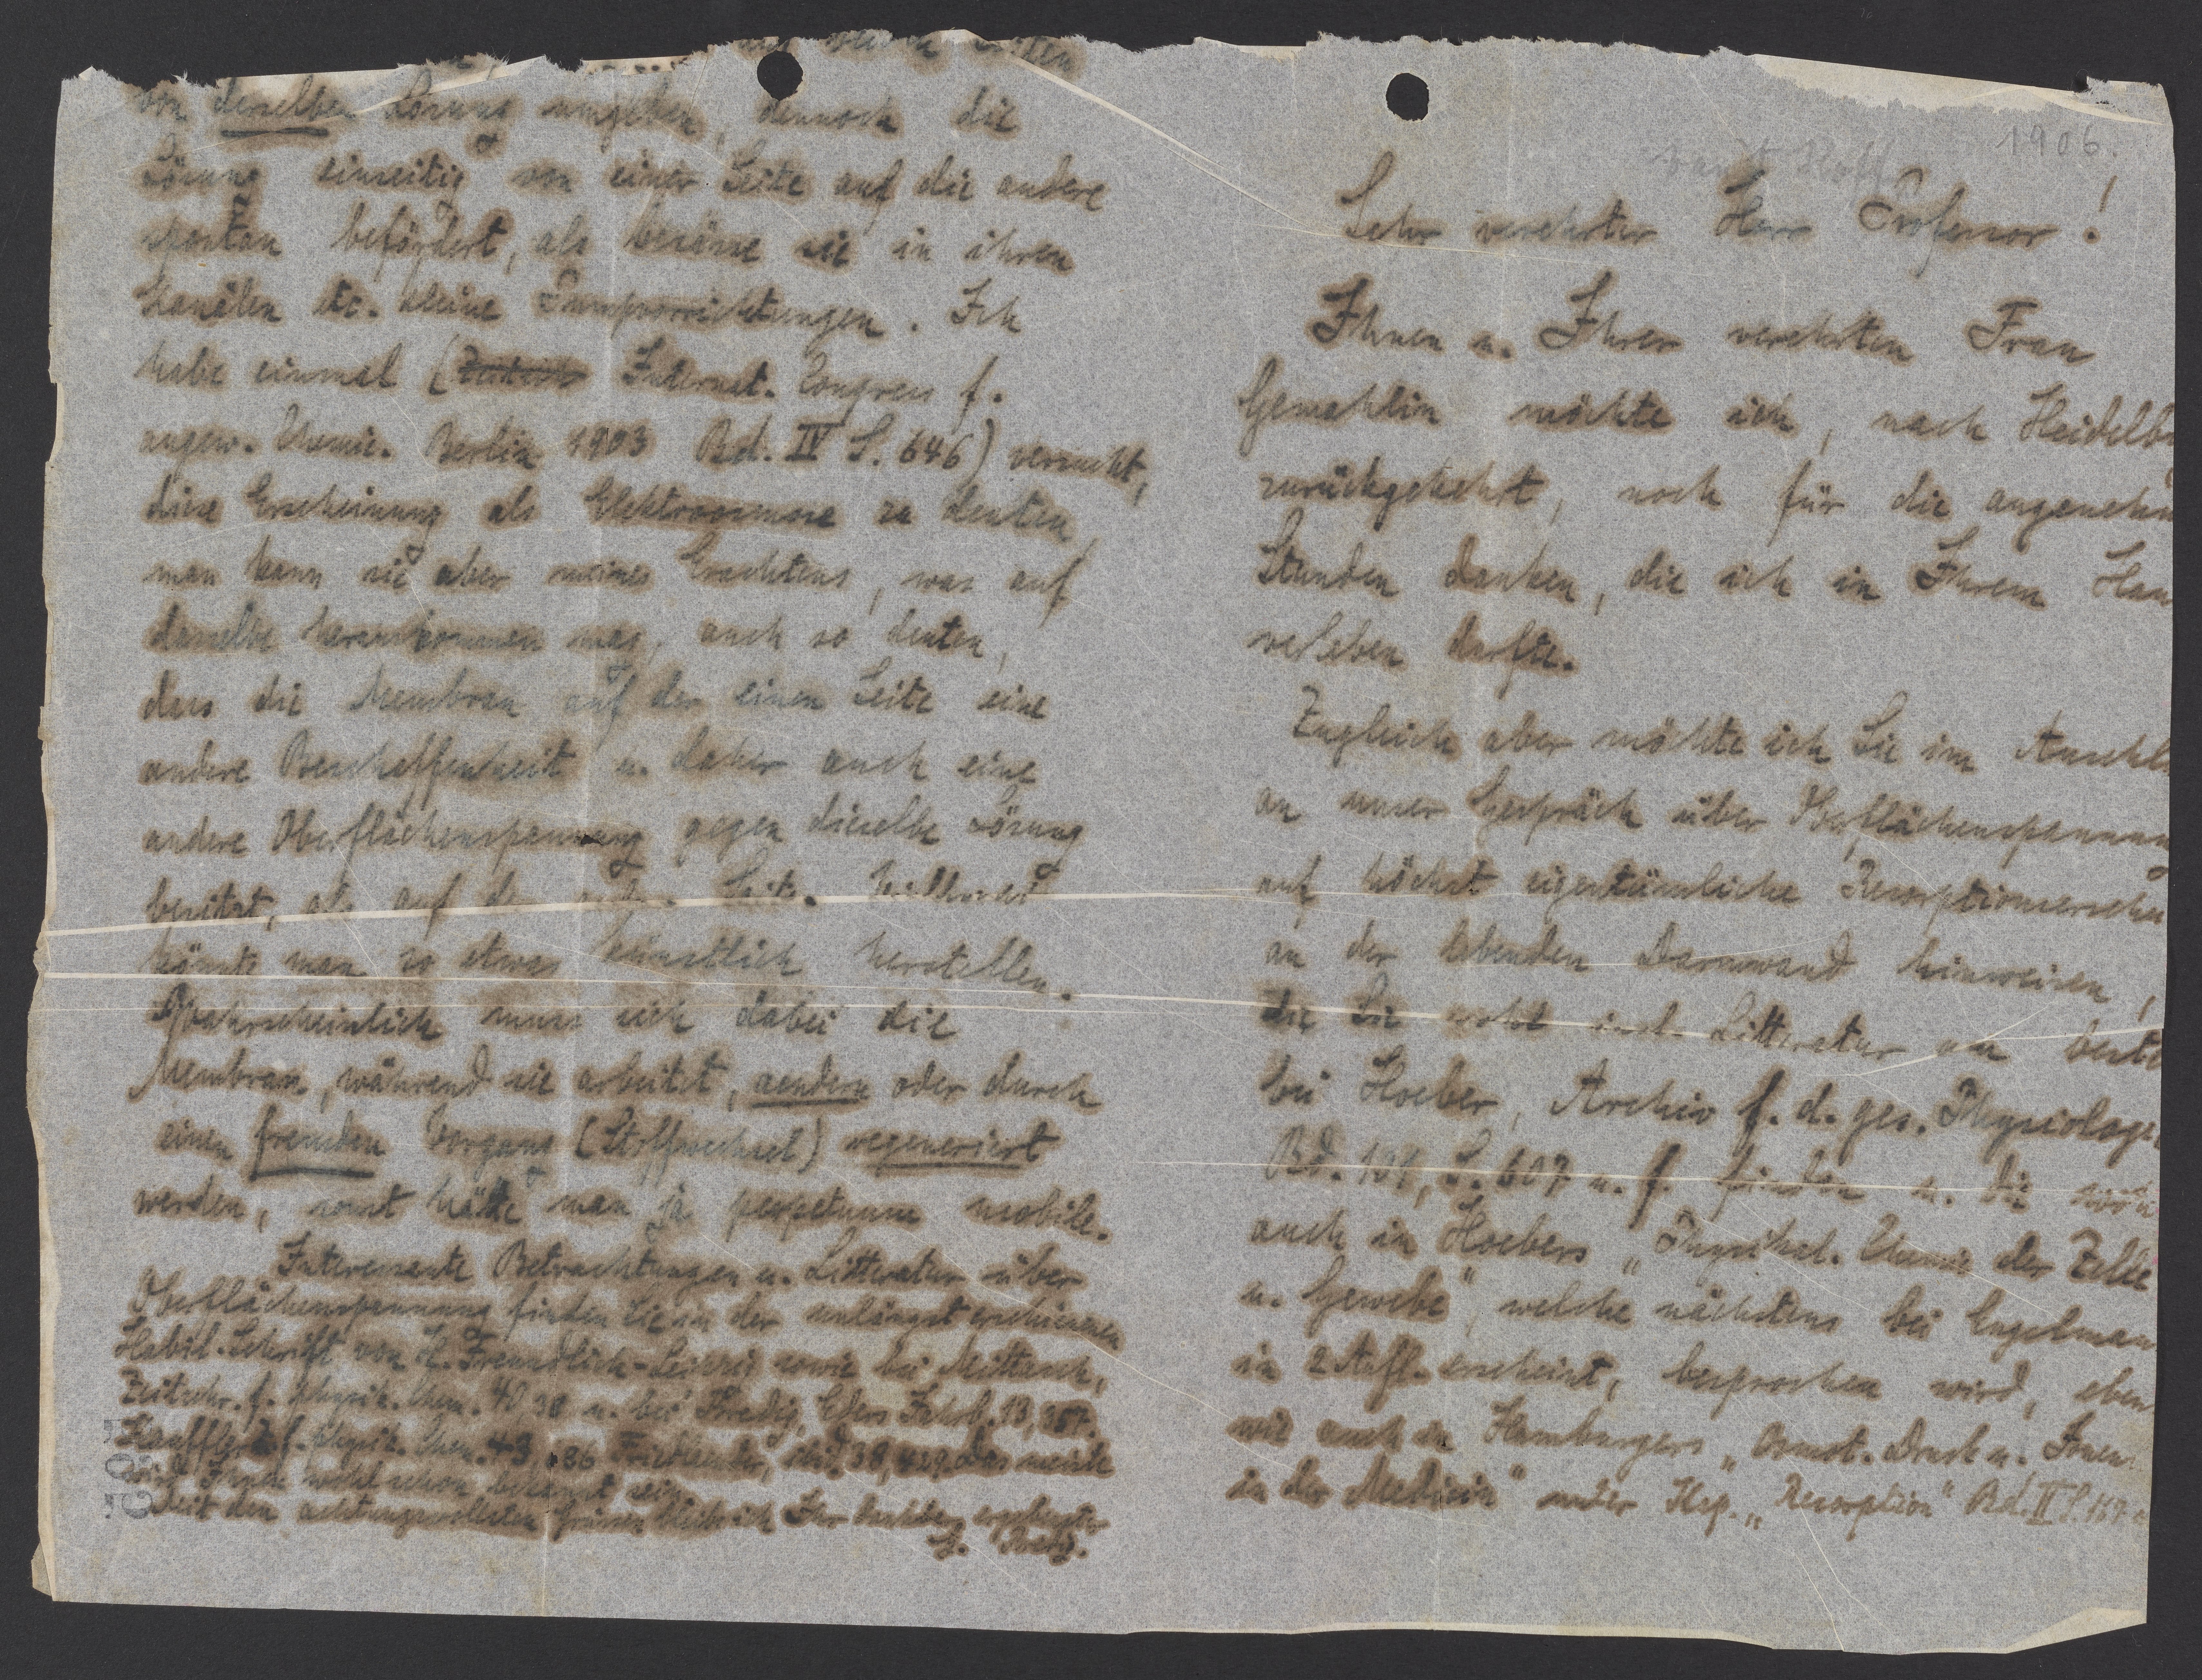 1906.
van't Hoff
Sehr verehrter Herr Professor!
Ihnen u. Ihrer verehrten Frau
Gemahlin möchte ich, nach Heidelb
zurückgekehrt, noch für die angenehm
Stunden danken, die ich in Ihrem Hau
verleben durfte.
Zugleich aber möchte ich Sie im Anschl
an unser Gespräch über Oberflächenspannung
auf höchst eigentümliche Resorptionsersche
an der lebenden Darmwand hinweisen,
die Sie wohl incl. Litteratur am beste
bei Hoeber, Archiv f. d. ges. Physiologi
Bd. 101, S. 607 u. f. finden u. die
auch in Hoebers „Physikal. Chemie der Zelle
u. Gewebe", welche nächstens bei Engelman
in 2 Aufl. erscheint, besprochen wird, eben
wie auch in Hamburgers „Osmot. Druck u. Ionen
in der Medicin" unter Kap. „Resorption" Bd. II S. 167
von derselben Lösung umgeben, dennoch die
Lösung einseitig von einer Seite auf die andere
spontan befördert, als besässe sie in ihren
Kanälen etc. kleine Pumpvorrichtungen. Ich
habe einmal (Internat. Congress f.
angew. Chemie. Berlin 1903 Bd. IV S. 646) versucht,
diese Erscheinung als Elektroosmose zu deuten
man kann sie aber meines Erachtens, was auf
dasselbe herauskommen mag, auch so deuten,
dass die Membran auf der einen Seite eine
andere Beschaffenheit u. daher auch eine
andere Oberflächenspannung gegen dieselbe Lösung
besitzt, als auf der andern Seite. Vielleicht
könnte man so etwas künstlich herstellen.
Wahrscheinlich muss sich dabei die
Membran, während sie arbeitet, aendern oder durch
einen fremden Vorgang (Stoffwechsel) regeneriert
werden, sonst hätte man ja perpetuum mobile.
Interessante Betrachtungen u. Litteratur über
Oberflächenspannung finden Sie in der unlängst erschienenen
Habil. Schrift von H. Freundlich-Leipzig sowie bei
Zeitschr. f. physik. Chem. 40 38 u. bei Bredig, Eders Jahrb. 13,
Z. f. physik. Chem. 43, 686 Friedländer, ibid. 38, Das meiste
wird Ihnen wohl schon bekannt sein
Mit den achtungsvollsten Grüssen bleibe ich Ihr dankbar ergebenster
G. Bredig.